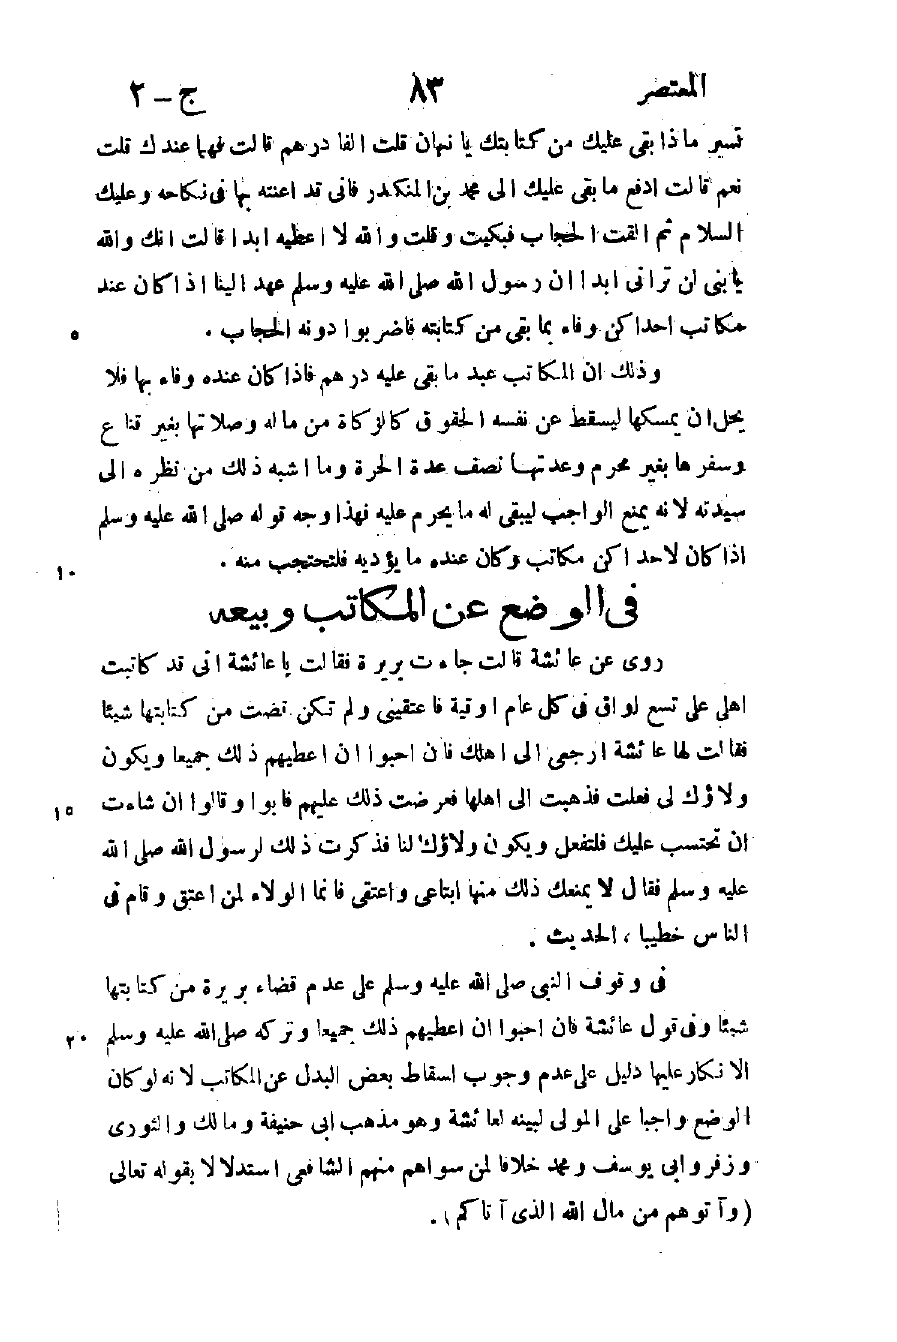 المعتصر ٨٣ ج - ٢
تسير ماذا بقى عليك من كتابتك يا نبهان قلت الفا درهم قالت فهما عندك قلت
نعم قالت ادفع ما بقى عليك الى محمد بن المنكدر فانى قد اعنته بها فى نكاحه وعليك
السلام ثم القت الحجاب فبكيت وقلت والله لا اعطيه ابدا قالت انك والله
يا بنى لن ترانى ابدا ان رسول الله صلى الله عليه وسلم عهد الينا اذا كان عند
مكاتب احدا كن وفاء بما بقى من كتابته فاضربوا دونه الحجاب . ٥
وذلك ان المكاتب عبد ما بقى عليه درهم فاذا كان عنده وفاء بها فلا
يحل ان يمسكها ليسقط عن نفسه الحقوق كالزكاة من ماله وصلاتها بغير قناع
وسفرها بغير محرم وعدتها نصف عدة الحرة وما اشبه ذلك من نظره الى
سيدته لانه يمنع الواجب ليبقى له ما يحرم عليه فهذا وجه قوله صلى الله عليه وسلم
اذا كان لاحد اكن مكاتب وكان عنده ما يؤديه فلتحتجب منه . ١٠
فى الوضع عن المكاتب وبيعه
روى عن عائشة قالت جاءت بريرة فقالت يا عائشة انى قد كاتبت
اهلى على تسع اواق فى كل عام اوقية فاعتقينى ولم تكن قضت من كتابتها شيئا
فقالت لها عائشة ارجعى الى اهلك فان احبوا ان اعطيهم ذلك جميعا ويكون
ولاؤك لى فعلت فذهبت الى اهلها فعرضت ذلك عليهم فابوا وقالوا ان شاءت ١٥
ان تحتسب عليك فلتفعل ويكون ولاؤك لنا فذكرت ذلك لرسول الله صلى الله
عليه وسلم فقال لا يمنعك ذلك منها ابتاعى واعتقى فانما الولاء لمن اعتق وقام فى
الناس خطيبا ، الحديث .
فى وقوف النبى صلى الله عليه وسلم على عدم قضاء بريرة من كتابتها
شيئا وفى قول عائشة فان احبوا ان اعطيهم ذلك جميعا وتركه صلى الله عليه وسلم ٢٠
الانكار عليها دليل على عدم وجوب اسقاط بعض البدل عن المكاتب لانه لو كان
الوضع واجبا على المولى لبينه لعائشة وهو مذهب ابى حنيفة ومالك والثورى
وزفر وابى يوسف ومحمد خلافا لمن سواهم منهم الشافعى استدلالا بقوله تعالى
(وآتوهم من مال الله الذى آتاكم) .